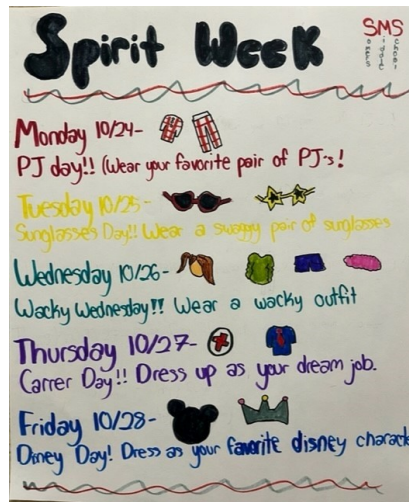 Spirit Week
SMS
omers iddle chool
Monday 10/24-
PJ day!! (Wear your favorite pair of PJ-s!
Tuesday 10/25-
Sunglasses Day!! Wear a swaggy pair of sunglasses
Wednesday 10/26-
Wacky Wednesday!! Wear a wacky outfit
Thursday 10/27-
Carrer Day!! Dress up as your dream job.
Friday 10/28-
Disney Day! Dress as your favorite disney charact